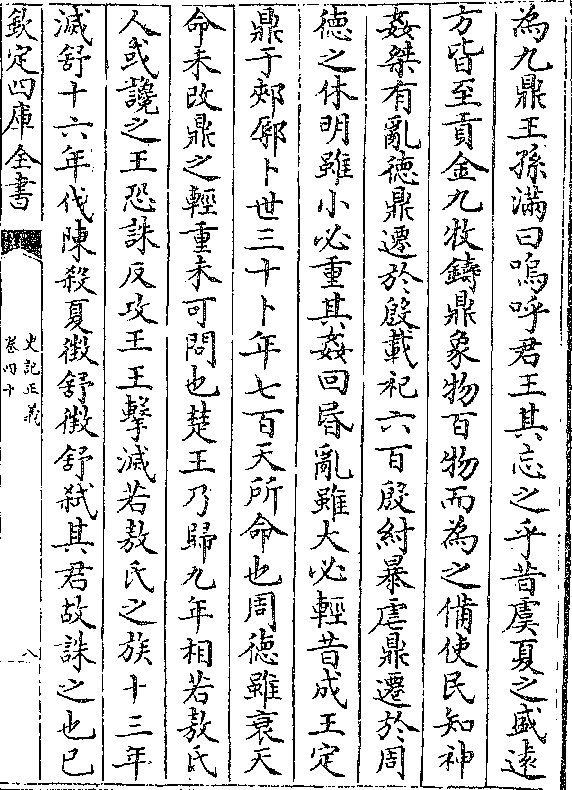 為九鼎王孫滿曰嗚呼君王其忘之乎昔虞夏之盛遠
方皆至貢金九牧鑄鼎象物百物而為之備使民知神
姦桀有亂德鼎遷於殷載祀六百殷紂暴虐鼎遷於周
德之休明雖小必重其姦回昏亂雖大必輕昔成王定
鼎于郟鄏卜世三十卜年七百天所命也周德雖衰天
命未改鼎之輕重未可問也楚王乃歸九年相若敖氏
人或讒之王恐誅反攻王王擊滅若敖氏之族十三年
滅舒十六年伐陳殺夏徵舒徵舒弒其君故誅之也已
欽定四庫全書
史記正義
卷四十
八